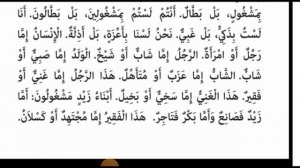 بِمَشْغُولٍ، بَلْ بَطَّالٌ. أَنْتُمْ لَسْتُمْ بِمَشْغُولِينَ، بَلْ بَطَّالُونَ. أَنَا
لَسْتُ بِذَكِيٍّ، بَلْ غَبِيٌّ. نَحْنُ لَسْنَا بِأَعْزَةٍ، بَلْ أَذِلَّةٌ. الْإِنْسَانُ إِمَّا
رَجُلٌ أَوْ امْرَأَةٌ. الرَّجُلُ إِمَّا شَابٌّ أَوْ شَيْخٌ. الْوَلَدُ إِمَّا صَبِيٌّ أَوْ
شَابٌّ. الشَّابُّ إِمَّا عَزَبٌ أَوْ مُتَأَهِّلٌ. هَذَا الرَّجُلُ إِمَّا غَنِيٌّ أَوْ
فَقِيرٌ. هَذَا الْغَنِيُّ إِمَّا سَخِيٌّ أَوْ بَخِيلٌ. أَبْنَاءُ زَيْدٍ مَشْغُولُونَ: أَمَّا
زَيْدٌ فَصَانِعٌ وَأَمَّا بَكْرٌ فَتَاجِرٌ. هَذَا الْفَقِيرُ إِمَّا مُجْتَهِدٌ أَوْ كَسْلَانُ.